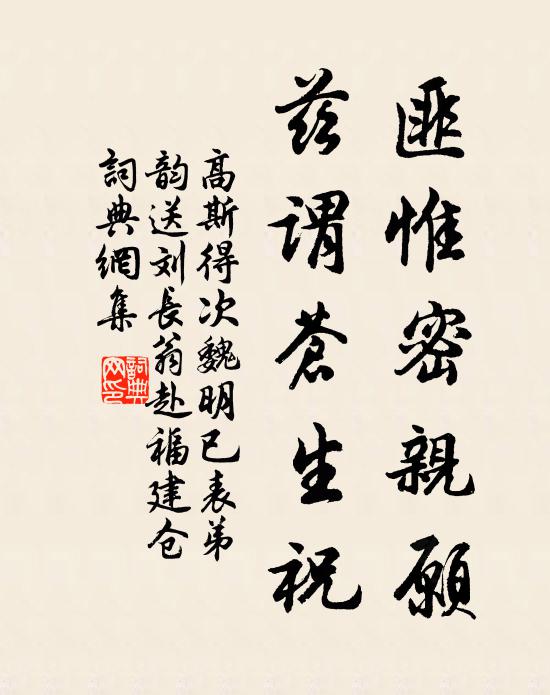 匪惟密親願
茲謂蒼生祝
高斯得次魏明已表弟
韵送刘長翁赴福建仓
詞典網集
詞典
网印